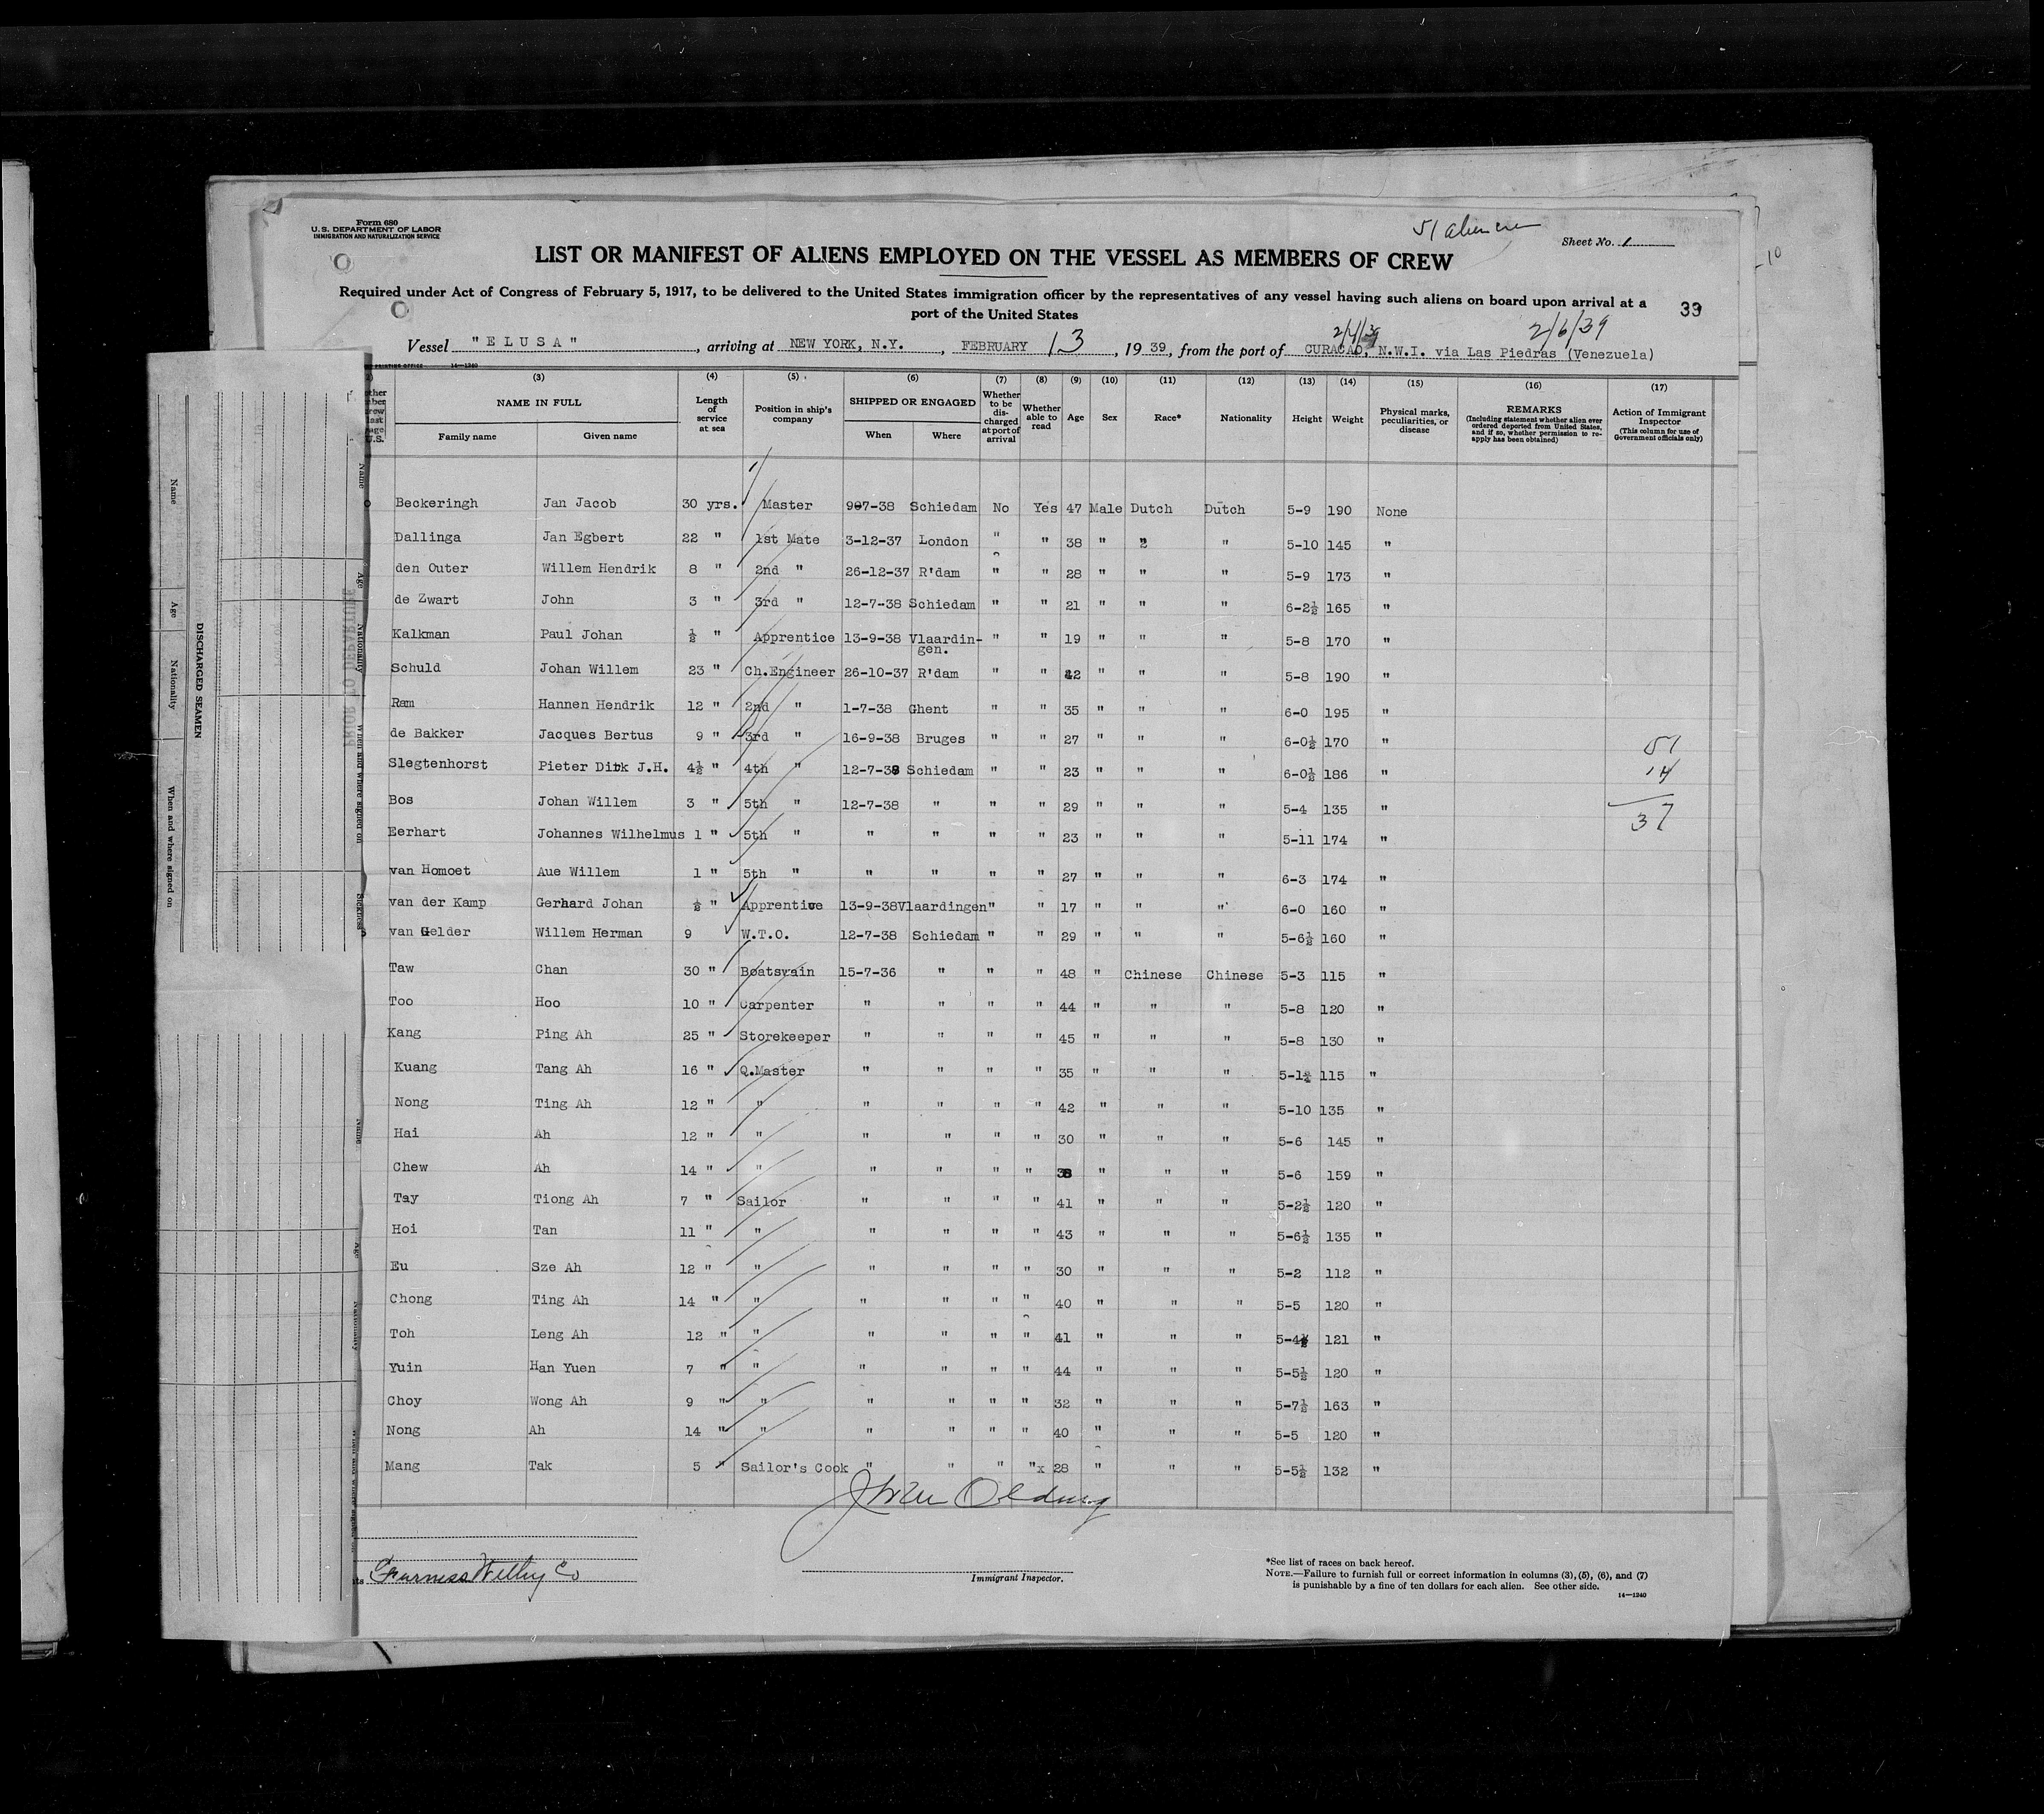 Form 680
U.S. DEPARTMENT OF LABOR
IMMIGRATION AND NATURALIZATION SERVICE
51 alien crew
Sheet No. 1
LIST OR MANIFEST OF ALIENS EMPLOYED ON THE VESSEL AS MEMBERS OF CREW
Required under Act of Congress of February 5, 1917, to be delivered to the United States immigration officer by the representatives of any vessel having such aliens on board upon arrival at a
port of the United States
39
2/6/39
Vessel "ELUSA", arriving at NEW YORK, N.Y., FEBRUARY 13, 1939, from the port of CURACAO, N.W.I. via Las Piedras (Venezuela)
PRINTING OFFICE 14—1240
(3) (4) (5) (6) (7) (8) (9) (10) (11) (12) (13) (14) (15) (16) (17)
NAME IN FULL Length of service at sea Position in ship's company SHIPPED OR ENGAGED Whether to be discharged at port of arrival Whether able to read Age Sex Race* Nationality Height Weight Physical marks, peculiarities, or disease REMARKS (Including statement whether alien ever ordered deported from United States, and if so, whether permission to reapply has been obtained) Action of Immigrant Inspector (This column for use of Government officials only)
Family name Given name When Where
Beckeringh Jan Jacob 30 yrs. Master 9-7-38 Schiedam No Yes 47 Male Dutch Dutch 5-9 190 None
Dallinga Jan Egbert 22 " 1st Mate 3-12-37 London " " 38 " " " 5-10 145 "
den Outer Willem Hendrik 8 " 2nd " 26-12-37 R'dam " " 28 " " " 5-9 173 "
de Zwart John 3 " 3rd " 12-7-38 Schiedam " " 21 " " " 6-2½ 165 "
Kalkman Paul Johan ½ " Apprentice 13-9-38 Vlaardin- " " 19 " " " 5-8 170 "
gen.
Schuld Johan Willem 23 " Ch.Engineer 26-10-37 R'dam " " 42 " " " 5-8 190 "
Ram Hannen Hendrik 12 " 2nd " 1-7-38 Ghent " " 35 " " " 6-0 195 "
de Bakker Jacques Bertus 9 " 3rd " 16-9-38 Bruges " " 27 " " " 6-0½ 170 "
51
Slegtenhorst Pieter Dirk J.H. 4½ " 4th " 12-7-38 Schiedam " " 23 " " " 6-0½ 186 "
14
Bos Johan Willem 3 " 5th " 12-7-38 " " " 29 " " " 5-4 135 "
37
Eerhart Johannes Wilhelmus 1 " 5th " " " " " 23 " " " 5-11 174 "
van Homoet Aue Willem 1 " 5th " " " " " 27 " " " 6-3 174 "
van der Kamp Gerhard Johan ½ " Apprentice 13-9-38 Vlaardingen " " 17 " " " 6-0 160 "
van Gelder Willem Herman 9 W.T.O. 12-7-38 Schiedam " " 29 " " " 5-6½ 160 "
Taw Chan 30 " Boatswain 15-7-36 " " " 48 " Chinese Chinese 5-3 115 "
Too Hoo 10 " Carpenter " " " " 44 " " " 5-8 120 "
Kang Ping Ah 25 " Storekeeper " " " " 45 " " " 5-8 130 "
Kuang Tang Ah 16 " Q.Master " " " " 35 " " " 115 "
Nong Ting Ah 12 " " " " " " 42 " " " 5-10 135 "
Hai Ah 12 " " " " " " 30 " " " 5-6 145 "
Chew Ah 14 " " " " " " " " " 5-6 159 "
Tay Tiong Ah 7 " Sailor " " " " 41 " " " 5-2½ 120 "
Hoi Tan 11 " " " " " " 43 " " " 5-6½ 135 "
Eu Sze Ah 12 " " " " " " 30 " " " 5-2 112 "
Chong Ting Ah 14 " " " " " " 40 " " " 5-5 120 "
Toh Leng Ah 12 " " " " " " 41 " " " 5-4½ 121 "
Yuin Han Yuen 7 " " " " " " 44 " " " 5-5½ 120 "
Choy Wong Ah 9 " " " " " " 32 " " " 5-7½ 163 "
Nong Ah 14 " " " " " " 40 " " " 5-5 120 "
Mang Tak 5 " Sailor's Cook " " " "x 28 " " " 5-5½ 132 "
Furness Withy Co
Immigrant Inspector.
*See list of races on back hereof.
NOTE.—Failure to furnish full or correct information in columns (3), (5), (6), and (7)
is punishable by a fine of ten dollars for each alien. See other side.
14—1240
DISCHARGED SEAMEN
Name
Age
Nationality
When and where signed on